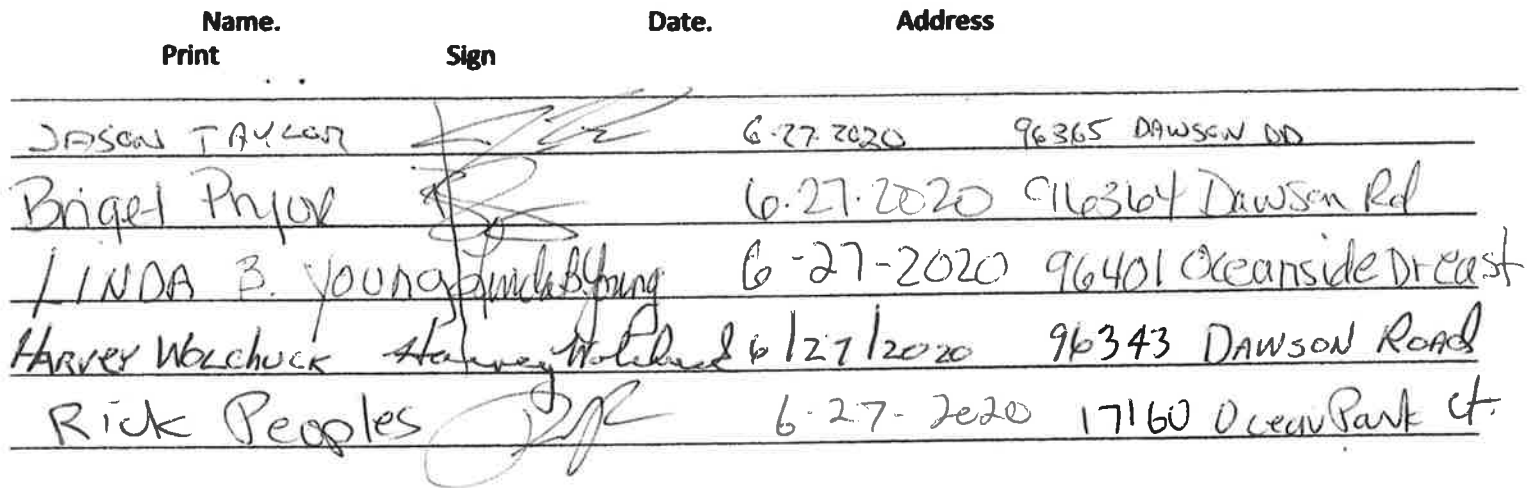 Name. Date. Address
Print Sign
JASON TAYLOR 6-27-2020 96365 DAWSON
6.27.2020 96364 Dawson Rd
LINDA B. Young Linda B Young 6-27-2020 96401 Oceanside Dr east
HARVEY WOLCHUCK Harvey Wolchuck 6/27/2020 96343 DAWSON ROAD
Rick Peoples 6-27-2020 17160 Ocean Park Ct.